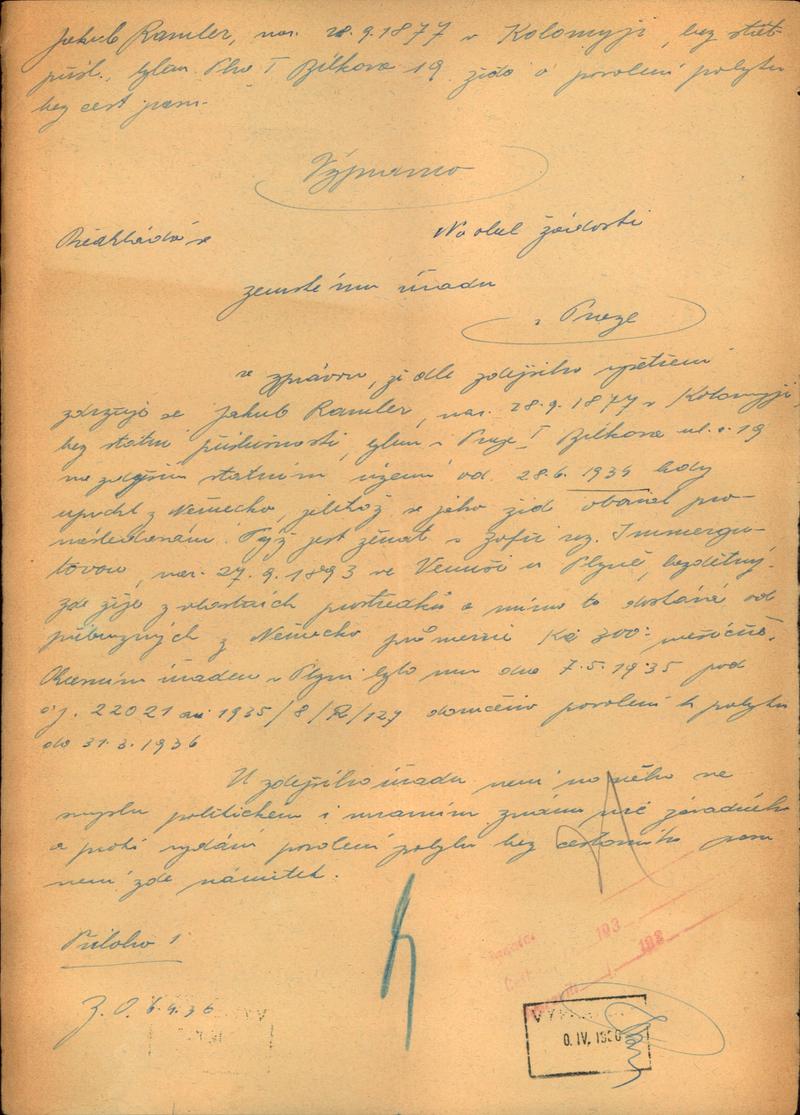 Jakub Ramler, nar. 28.9.1877 v Kolomyji, bez stát.
přísl., bytem Pha I Bílkova 19 žádá o povolení pobytu
bez cest. pasu.
Výpravno
Předkládá se
Na obal žádosti
zemskému úřadu
v Praze
se zprávou, že dle zdejšího vyšetření
zdržuje se Jakub Ramler, nar. 28.9.1877 v Kolomyji,
bez státní příslušnosti, bytem v Praze I Bílkova ul. č. 19
na zdejším státním území od 28.6.1934 kdy
uprchl z Německa, jelikož se jako žid obával pro-
následování. Týž jest ženat s Žofií roz. Immergu-
tovou, nar. 27.9.1893 ve u Plzně, bezdětný,
zde žije z vlastních prostředků a mimo to dostává od
příbuzných z Německa průměrně Kč 300.- měsíčně.
Okresním úřadem v Plzni bylo mu dne 7.5.1935 pod
čj. 22021 1935/8/R/127 povolení k pobytu
do 31.3.1936
U zdejšího úřadu není na něho ve
smyslu politickém i mravním známo nic závadného
a proti vydání povolení pobytu bez cestovního pasu
není zde námitek.
Příloha 1
193
193
Z. O. 6.4.36
0. IV. 1936